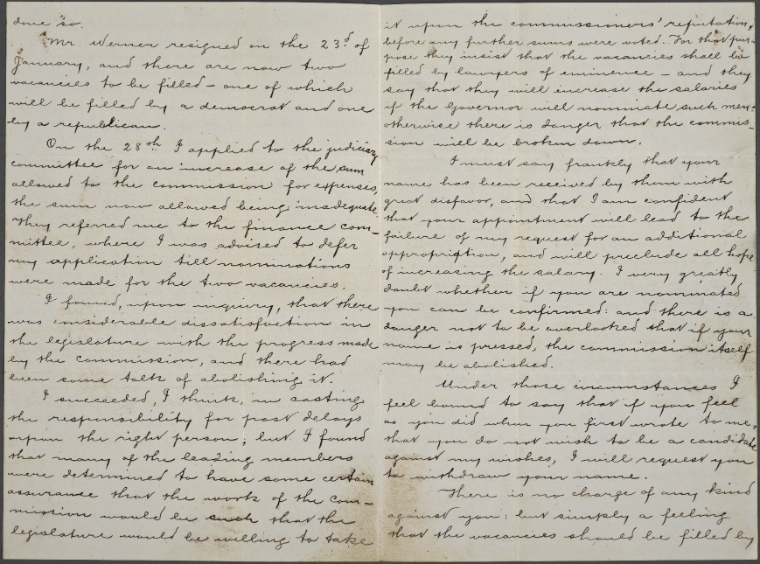 done so.
Mr. Werner resigned on the 23d of
January, and there are now two
vacancies to be filled - one of which
will be filled by a democrat and one
by a republican.
On the 28th I applied to the judiciary
committee for an increase of the sum
allowed to the commission for expenses,
the sum now allowed being inadequate.
They referred me to the finance com-
mittee, where I was advised to defer
my application till nominations
were made for the two vacancies.
I found, upon inquiry, that there
was considerable dissatisfaction in
the legislature with the progress made
by the commission, and there had
been some talk of abolishing it.
I succeeded, I think, in casting
the responsibility for past delays
upon the right person; but I found
that many of the leading members
were determined to have some certain
assurance that the work of the com-
mission would be such that the
legislature would be willing to take
it upon the commissioners' reputation,
before any further sums were voted. For that pur-
pose they insist that the vacancies shall be
filled by lawyers of eminence - and they
say that they will increase the salaries
if the Governor will nominate such men:
otherwise there is danger that the commis-
sion will be broken down.
I must say frankly that your
name has been received by them with
great disfavor, and that I am confident
that your appointment will lead to the
failure of my request for an additional
appropriation, and will preclude all hope
of increasing the salary. I very greatly
doubt whether if you are nominated
you can be confirmed: and there is a
danger not to be overlooked that if your
name is pressed, the commission itself
may be abolished.
Under those circumstances I
feel bound to say that if you feel
as you did when you first wrote to me,
that you do not wish to be a candidate
against my wishes, I will request you
to withdraw your name.
There is no charge of any kind
against you: but simply a feeling
that the vacancies should be filled by